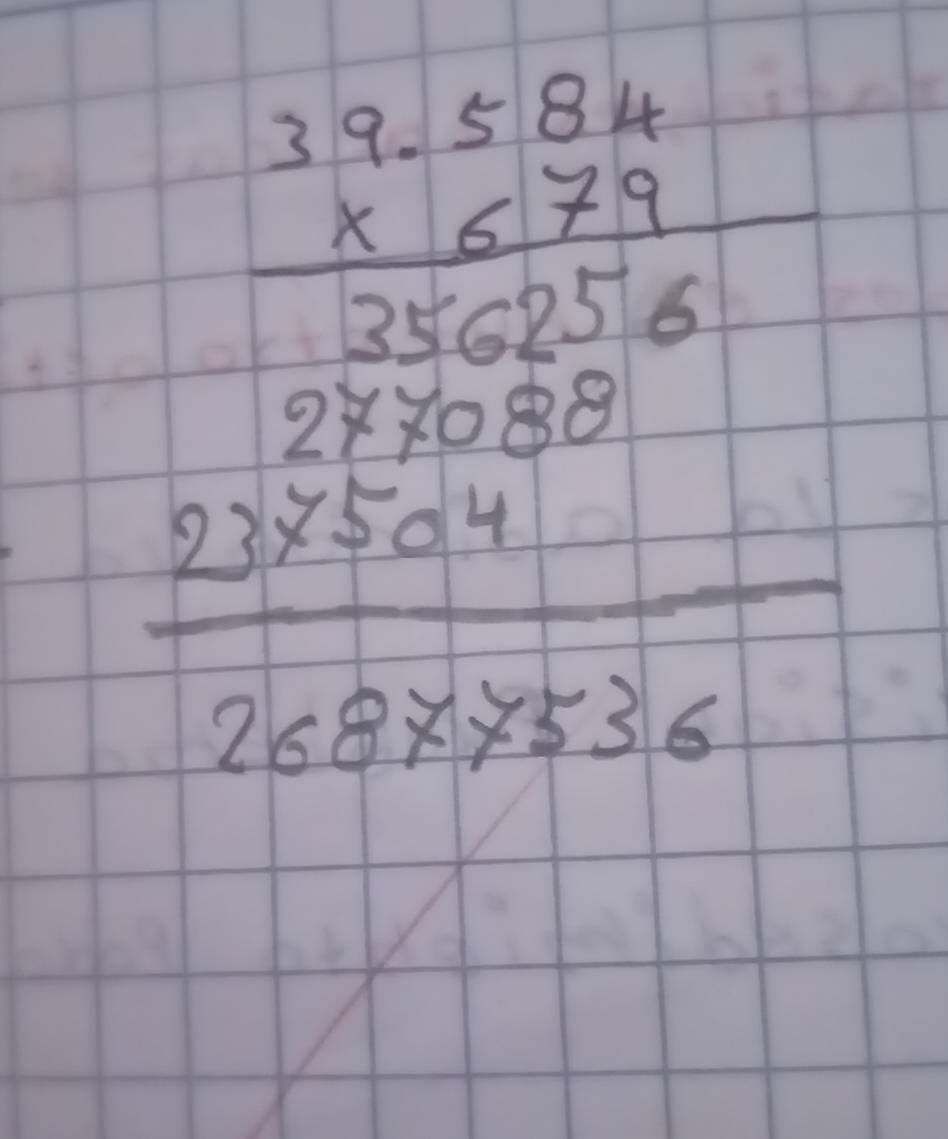 39.584
x 679
356256
277088
237504
26877536